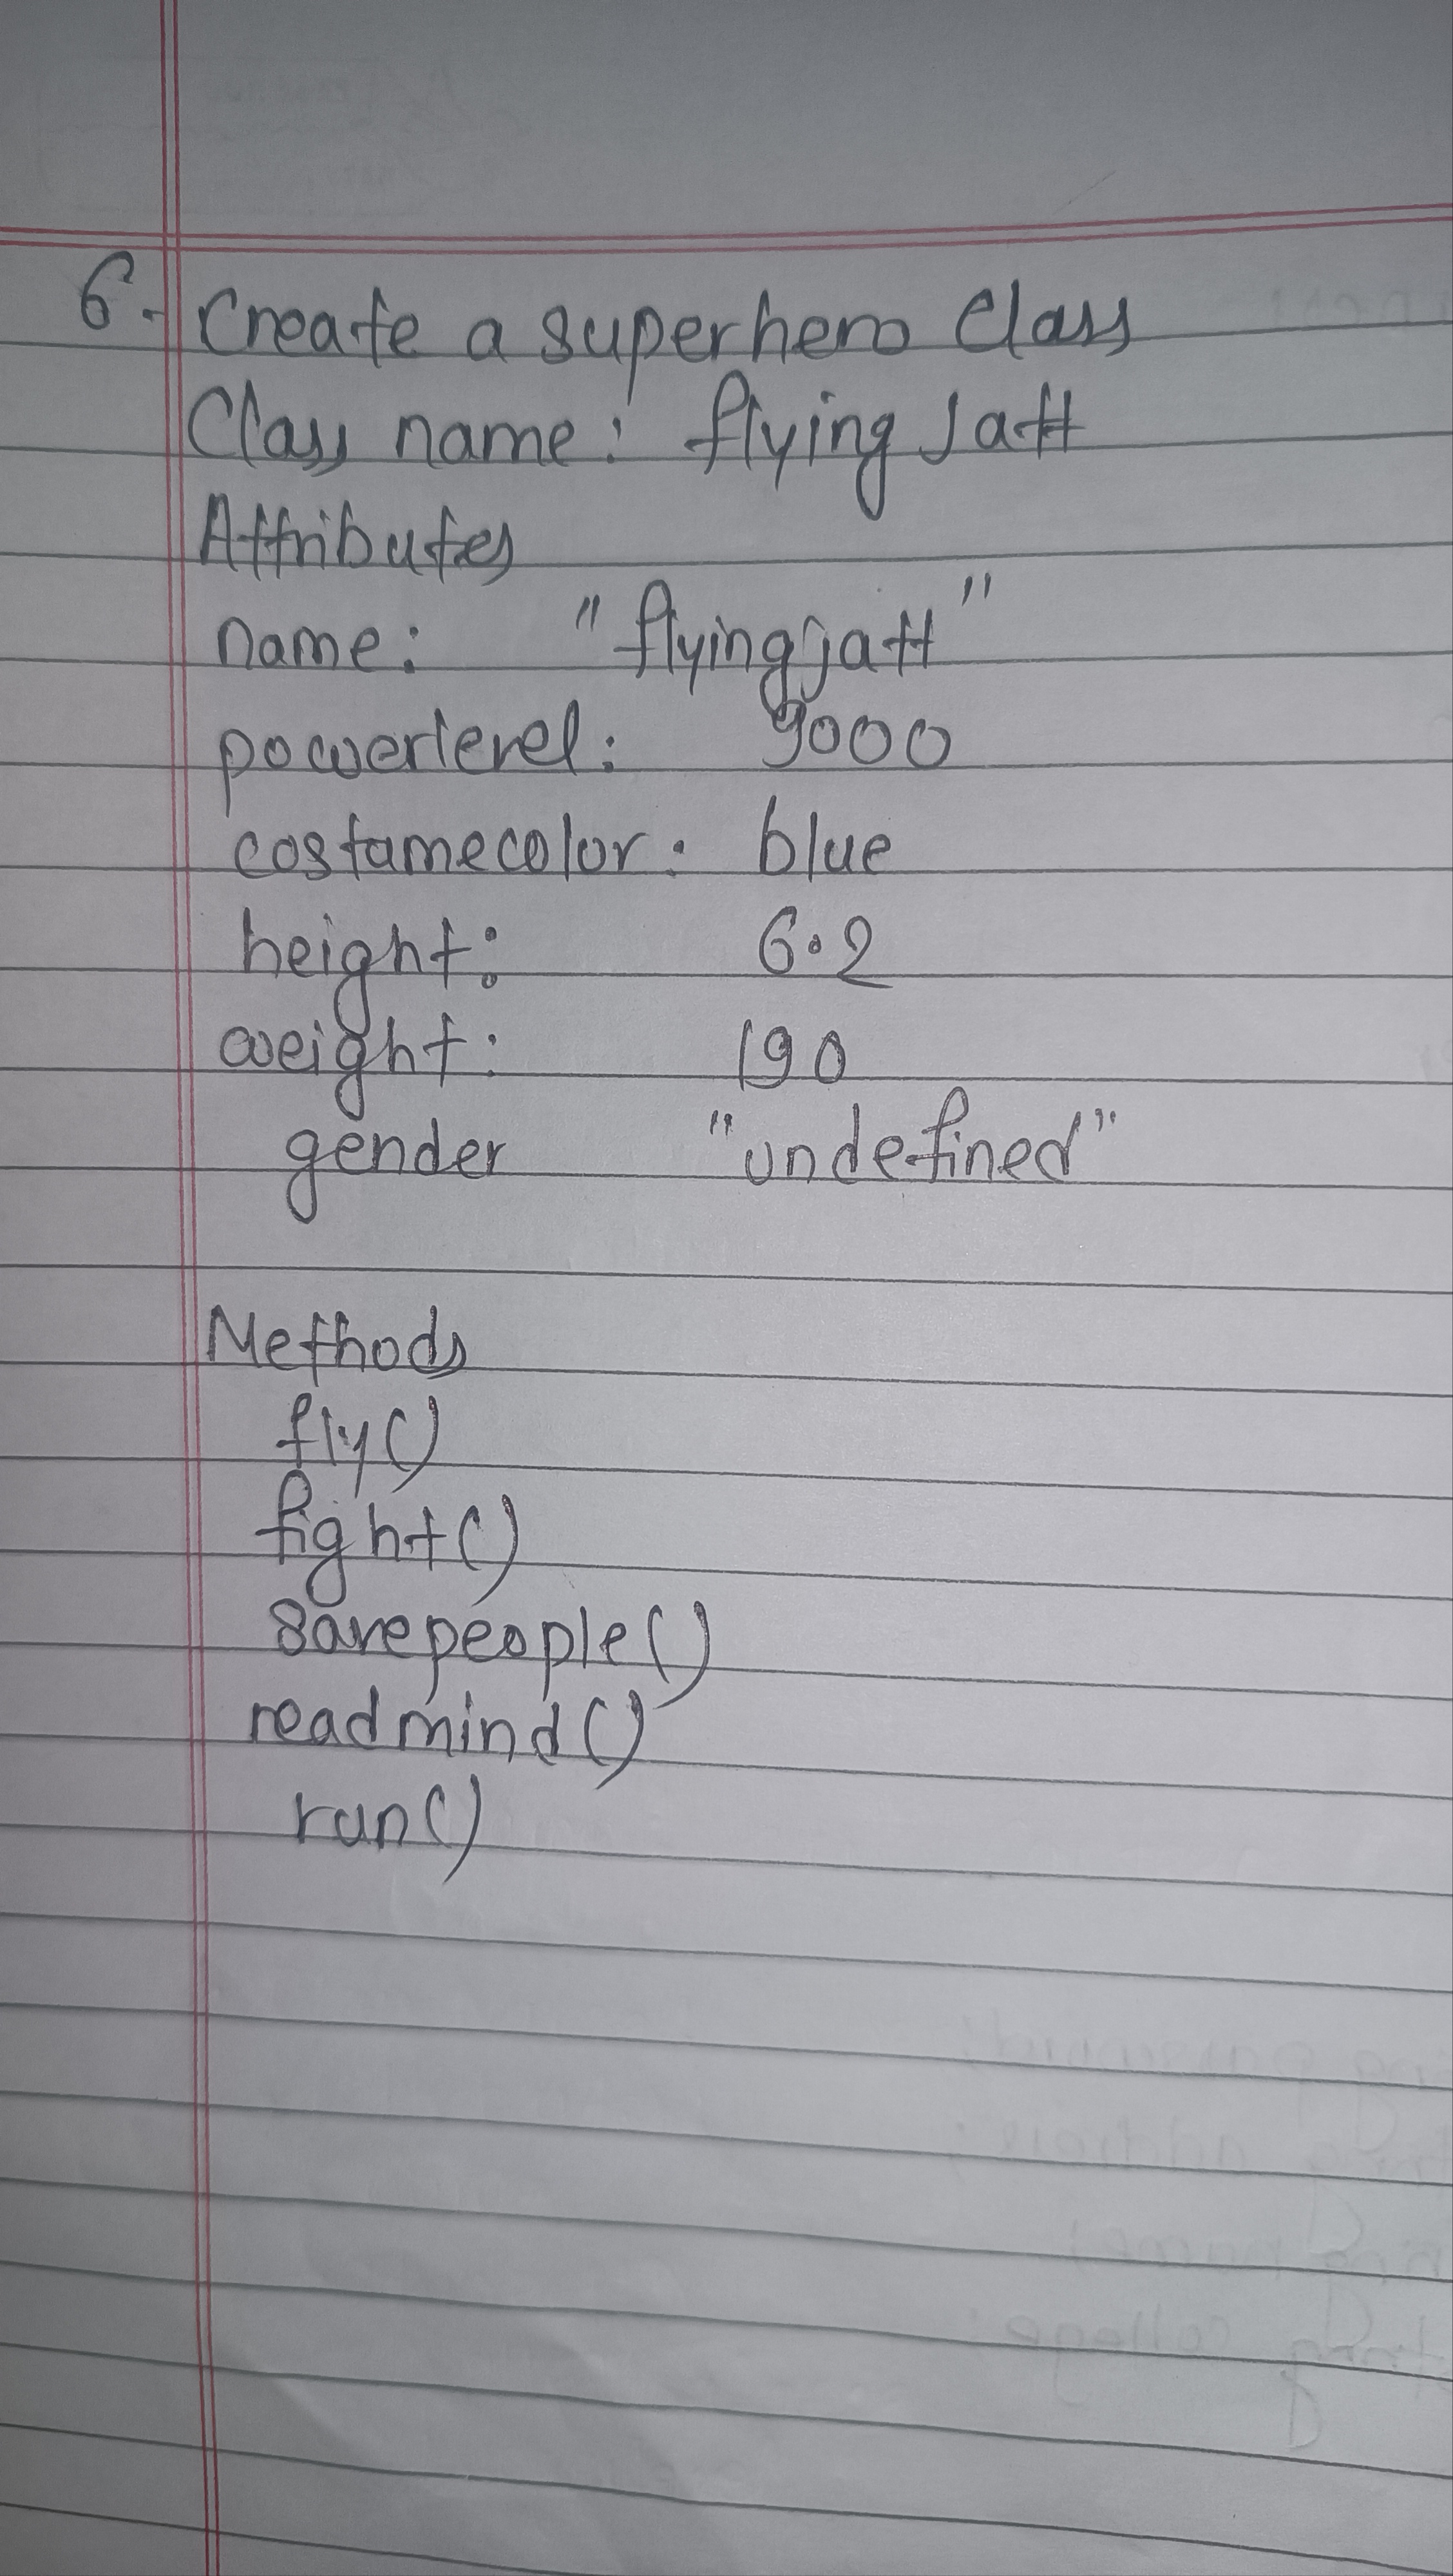 6. Create a superhero Class
Class name: flying Jatt
Attributes
name: "flyingjatt"
powerlevel: 9000
costamecolor: blue
height: 6.2
weight: 190
gender "undefined"
Methods
fly()
fight()
savepeople()
readmind()
run()